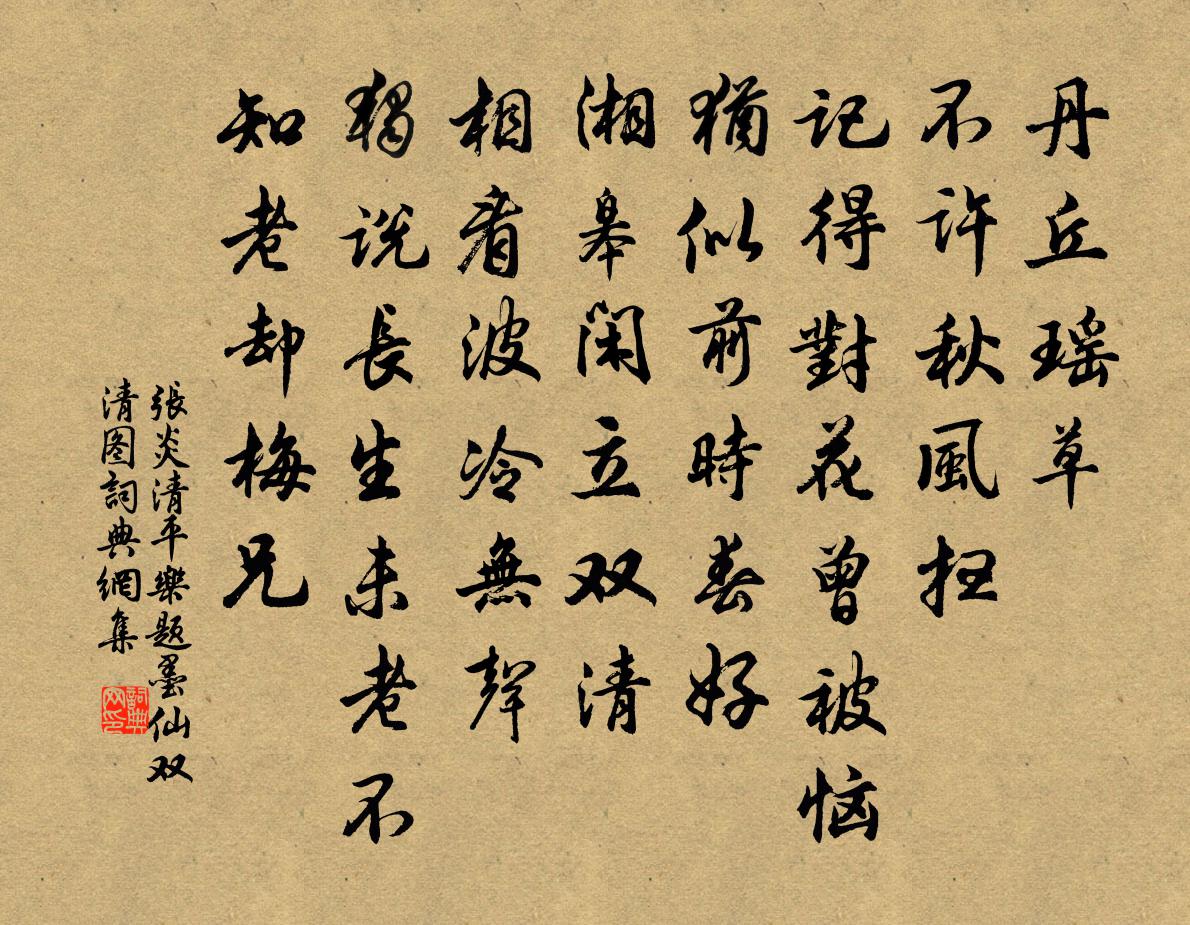 丹丘瑶草
不许秋風扫
记得對花曾被恼
猶似前時春好
湘皋闲立双清
相看波冷無聲
独说長生未老不
知老却梅兄
張炎清平樂题墨仙双
清图詞典網集
詞典网印